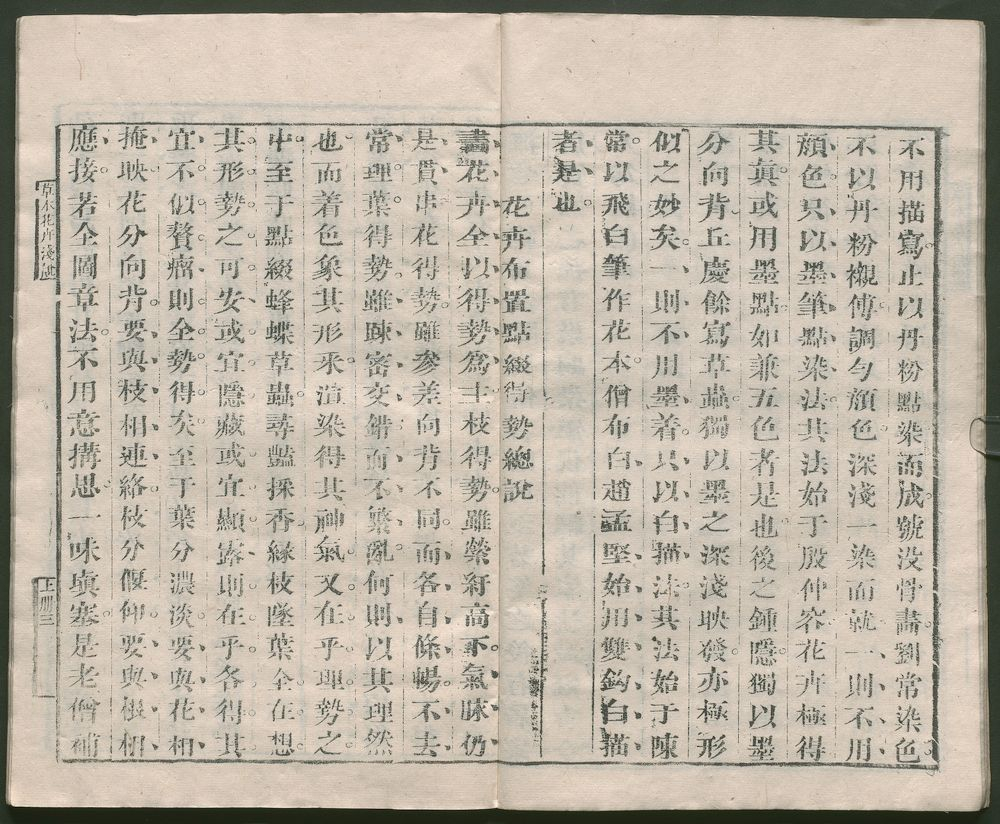 不用描寫止以丹粉點染而成號没骨畵劉常染色
不以丹粉襯傅調勻顔色深淺一染而就一則不用
顔色只以墨筆點染法其法始于殷仲容花卉極得
其眞或用墨點如兼五色者是也後之鍾隱獨以墨
分向背丘慶餘寫草蟲獨以墨之深淺映發亦極形
似之妙矣一則不用墨着只以白描法其法始于陳
常以飛白筆作花本僧布白趙孟堅始用雙鈎白描
者是也
花卉布置點綴得勢總說
畵花卉全以得勢爲主枝得勢雖縈紆高下氣脉仍
是貫串花得勢雖參差向背不同而各自條暢不去
常理葉得勢雖疎密交錯而不繁亂何則以其理然
也而着色象其形采渲染得其神氣又在乎理勢之
中至于點綴蜂蝶草蟲尋豔採香緣枝墜葉全在想
其形勢之可安或宜隱藏或宜顯露則在乎各得其
宜不似贅瘤則全勢得矣至于葉分濃淡要與花相
掩映花分向背要與枝相連絡枝分偃仰要與根相
應接若全圖章法不用意搆思一味塡塞是老僧補
草木花卉淺說
上册三